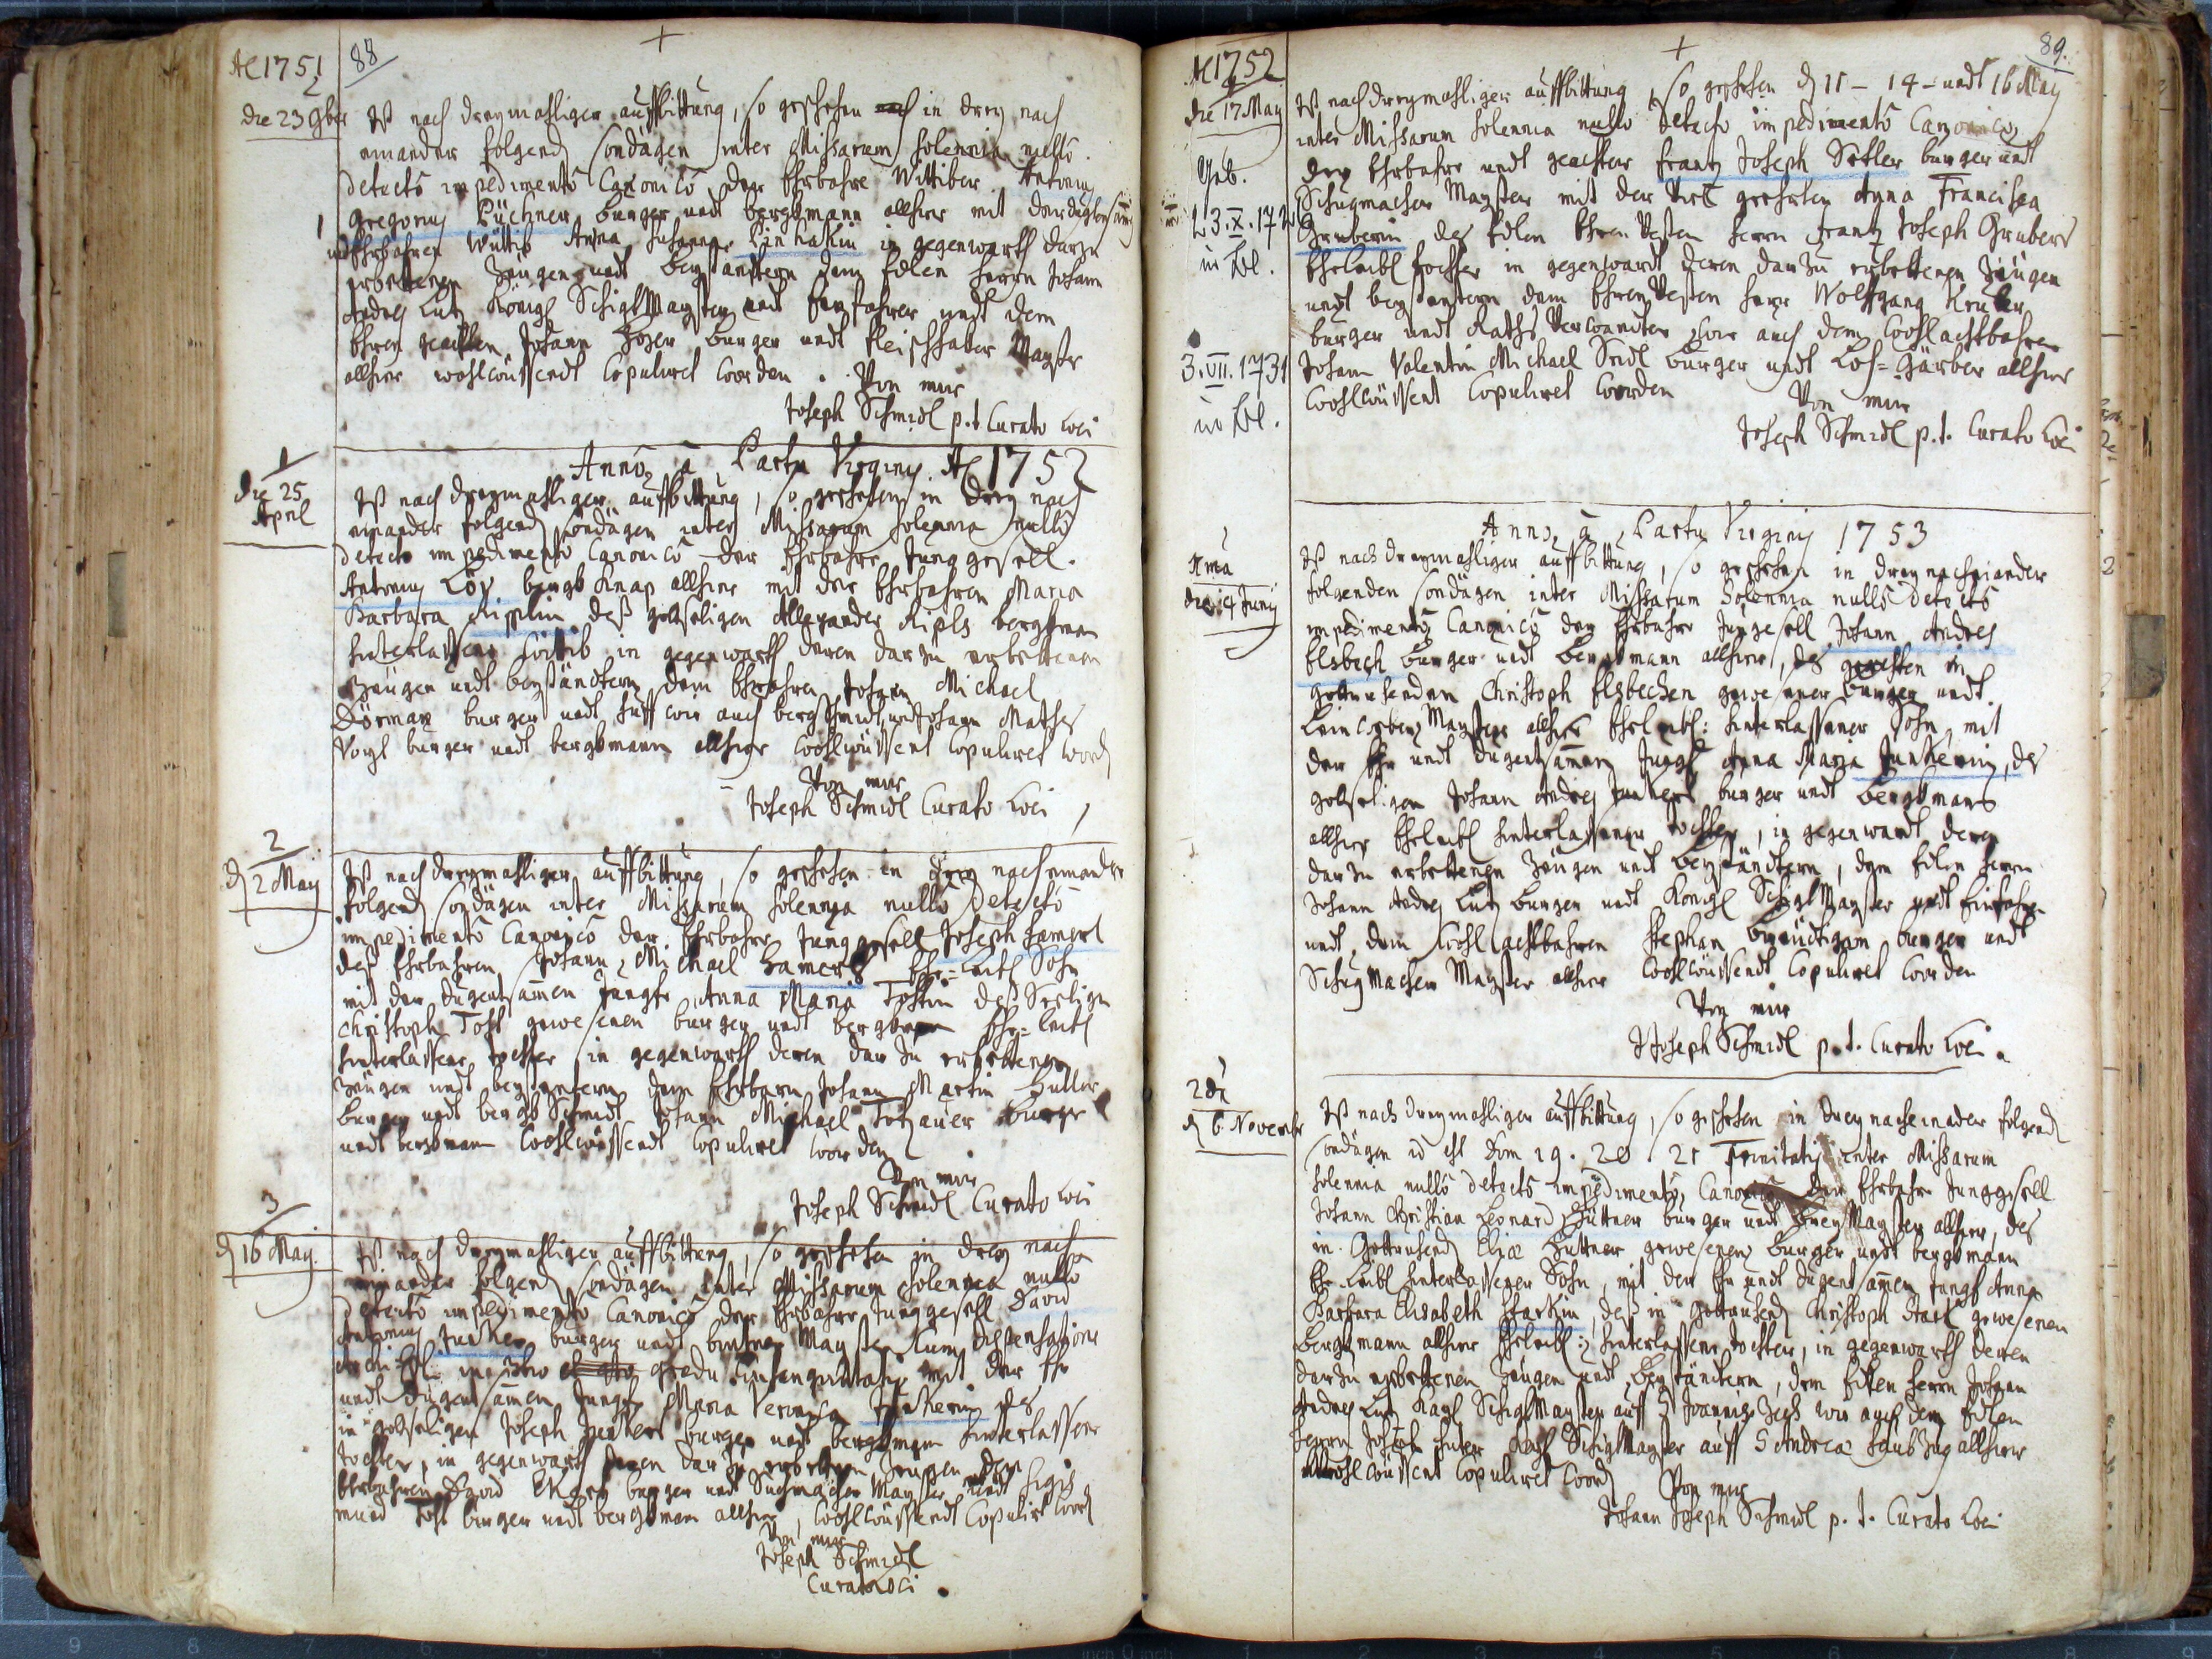 Ao 1751
88
2
die 23 9ber
Ist nach dreymahliger auffbittung, so geschehen in drey nach
einander folgend Sondägen inter Missarum Solennia nullo
detecto impedimento Canonico der Ehrbahre Wittiber Antonius
Gregorius Püchner burger undt bergkmann allhier mit der dugentsamen
undt Ehrbahren Wittib Anna Susanna in gegenwarth darzu
erbettenen Zeugen undt beyständtern dem Edlen Herrn Johann
Andres Lutz Königl SchigtMayster undt Einfahrer undt dem
Ehren geachten Johann burger undt fleischhaker Mayster
allhier wohlwüssendt Copuliret worden. Von mir
Joseph Schmidl p.t. Curato Loci
Anno, à Partu Virginis Ao 1752
1
die 25
April
Ist nach dreymahliger auffbittung, so geschehen in drey nach
einander folgend Sondägen inter Missarum Solennia nullo
detecto impedimento Canonico der Ehrbahre Junggesell
Antonius Löv bergkknap allhier mit der Ehrbahren Maria
Barbara Ripplin deß gottseeligen Allexander Ripls bergkman
hinterlassene Wittib in gegenwarth deren darzu erbettenen
Zeugen undt beyständtern dem Ehrbahren Johann Michael
Dörman burger undt huff wie auch bergschmidt undt Johann Mathes
Vogl burger undt bergkmann allhier wohlwüssent Copuliret word
Von mir
Joseph Schmidl Curato Loci
2
d 2 May
Ist nach dreymahliger auffbittung, so geschehen in drey nacheinander
folgend Sondägen inter Missarum Solennia nullo detecto
impedimento Canonico der Ehrbahre Junggesell Joseph Hamerl
deß Ehrbahren Johann Michael Hamerls Ehe=leibl Sohn
mit der dugentsammen Jungfr Anna Maria Tostin deß Seeligen
Christoph Tost gewesenen burger undt bergkman Ehe=leibl
hinterlassene tochter in gegenwarth deren darzu erbettenen
Zeugen undt beyständtern dem Ehrbarn Johann Martin
burger undt bergk Schmidt Johann Michael burger
undt bergkmann wohlwüssendt Copuliret worden
Von mir
Joseph Schmidl Curato Loci
3
d 16 May
Ist nach dreymahliger auffbittung, so geschehen in drey nach
einander folgend Sondägen inter Missarum Solennia nullo
detecto impedimento Canonico der Ehrbahre Junggesell David
Antonius Junker burger undt Mayster Cum dispensatione
in 3tio gradu Consanguinitatis mit der Ehr
undt dugentsammen Jungfr Maria Veronica Junkerin des
in gottseeligen Joseph Junkers burger undt bergkman hinterlassene
tochter, in gegenwarth deren darzu erbettenen Zeugen dem
Ehrbahren David burger undt Suchmacher Mayster undt Sigis
mund Tost burger undt bergkman allhier, wohlwüssendt Copulirt word
Von mir
Joseph Schmidl
Curato Loci.
89.
Ao 1752
4
die 17 May
Geb.
23.X.172
in Bl.
3.VII.1731
in Bl.
Ist nach dreymahliger auffbittung, so geschehen d 11 - 14 - undt 16 May
inter Missarum Solennia nullo detecto impedimento Canonico
der Ehrbahre undt geachter Frantz Joseph burger undt
Schugmacher Mayster mit der Viel geehrten Anna Francisca
Gruberin des Edlen Ehren Vesten Herrn Frantz Joseph Grubers
Eheleibl tochter in gegenwardt deren darzu erbettenen Zeugen
undt beyständtern dem Ehren Vesten Herr Wolffgang
burger undt Raths Verwandter wie auch dem Wohlachtbahren
Johann Valentin Michael Seidl burger undt Loh=Gärber allhier
Wohlwüssent Copuliret worden Von mir
Joseph Schmidl p.t. Curato Loci
Anno, à Partu Virginis 1753
1ma
die 4 Juny
Ist nach dreymahliger auffbittung, so geschehen in drey nacheinander
folgenden Sondägen inter Missarum Solennia nullo detecto
impedimento Canonico der Ehrbahre Junggesell Johann Andres
Elsbech burger undt bergkmann allhier, des geachten in
gottruhenden Christoph Elsbechen gewesener burger undt
Leinweber Mayster allhier Eheleibl: hinterlassener Sohn, mit
der Ehr undt dugentsammen Jungf Anna Maria Junkerin, des
gottseeligen Johann Andres Junkers burger undt bergkmans
allhier Eheleibl hinterlassenen tochter, in gegenwardt deren
darzu erbettenen Zeugen undt beyständtern, dem Edlen Herrn
Johann Andres Lutz burger undt Königl SchigtMayster undt Einfahrer
undt dem Wohlachtbahren Stephan Breüdtigam burger undt
Schugmacher Mayster allhier Wohlwüssendt Copuliret worden
Von mir
Joseph Schmidl p.t. Curato Loci.
2da
d 6 November
Ist nach dreymahliger auffbittung, so geschehen in drey nacheinader folgend
Sondägen id est Dom 19. 20. 21 Trinitatis inter Missarum
Solennia nullo detecto impedimento, Canonico der Ehrbahre Junggesell
Johann Christian Leonard Hüttner burger undt Mayster allhier, des
in Gottruhend Eliæ Huttner gewesenen burger undt bergkmann
Eheleibl hinterlassener Sohn, mit der Ehr undt dugentsammen Jungf Anna
Barbara Elisabeth Starkin, des in gottruhend Christoph Stark gewesenen
bergkmann allhier Eheleibl: hinterlassene tochter, in gegenwarth deren
darzu erbettenen Zeugen undt beyständtern, dem Edlen Herrn Johann
Andres Lutz Kayl SchigtMayster auff S Joannis Zech wie auch dem Edlen
Herrn Joseph SchigtMayster auff S Andreæ allhier
Wohlwüssent Copuliret word
Von mir
Johann Joseph Schmidl p.t. Curato Loci